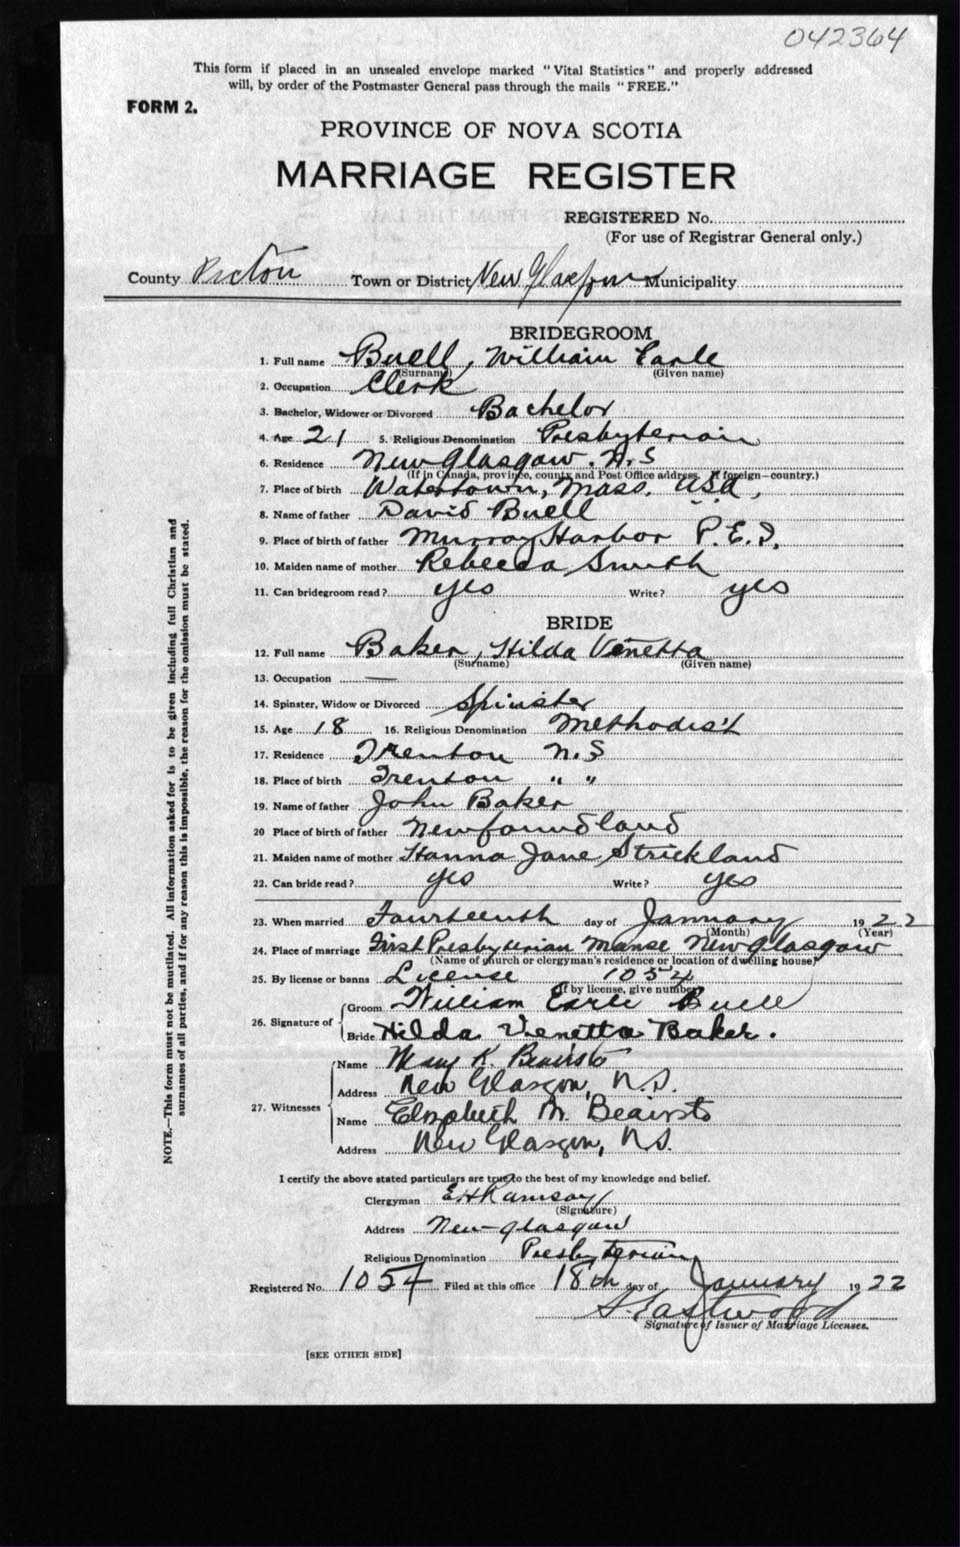 042364
This form if placed in an unsealed envelope marked "Vital Statistics" and properly addressed
will, by order of the Postmaster General pass through the mails "FREE."
FORM 2.
PROVINCE OF NOVA SCOTIA
MARRIAGE REGISTER
REGISTERED No.
(For use of Registrar General only.)
County Pictou Town or District New Glasgow Municipality
BRIDEGROOM
1. Full name Buell, William Earle
(Surname) (Given name)
2. Occupation Clerk
3. Bachelor, Widower or Divorced Bachelor
4. Age 21 5. Religious Denomination Presbyterian
6. Residence New Glasgow. N.S
(If in Canada, province, county and Post Office address. If foreign—country.)
7. Place of birth Watertown, Mass. USA,
8. Name of father David Buell
9. Place of birth of father Murray Harbor P.E.I.
10. Maiden name of mother Rebecca Smith
11. Can bridegroom read? yes Write? yes
BRIDE
12. Full name Baker, Hilda Venetta
(Surname) (Given name)
13. Occupation —
14. Spinster, Widow or Divorced Spinster
15. Age 18 16. Religious Denomination Methodist
17. Residence Trenton N.S
18. Place of birth Trenton " "
19. Name of father John Baker
20 Place of birth of father Newfoundland
21. Maiden name of mother Hanna Jane Strickland
22. Can bride read? yes Write? yes
23. When married Fourteenth day of January 1922
(Month) (Year)
24. Place of marriage First Presbyterian Manse New Glasgow
(Name of church or clergyman's residence or location of dwelling house)
25. By license or banns License 1054
(If by license, give number)
26. Signature of
Groom William Earle Buell
Bride Hilda Venetta Baker.
27. Witnesses
Name Mary K. Beairsto
Address New Glasgow, N.S.
Name Elizabeth M. Beairsto
Address New Glasgow, N.S.
I certify the above stated particulars are true to the best of my knowledge and belief.
Clergyman E H Ramsay
(Signature)
Address New-Glasgow
Religious Denomination Presbyterian
Registered No. 1054 Filed at this office 18th day of January 1922
S. Eastwood
Signature of Issuer of Marriage Licenses.
[SEE OTHER SIDE]
NOTE.—This form must not be mutilated. All information asked for is to be given including full Christian and
surnames of all parties, and if for any reason this is impossible, the reason for the omission must be stated.